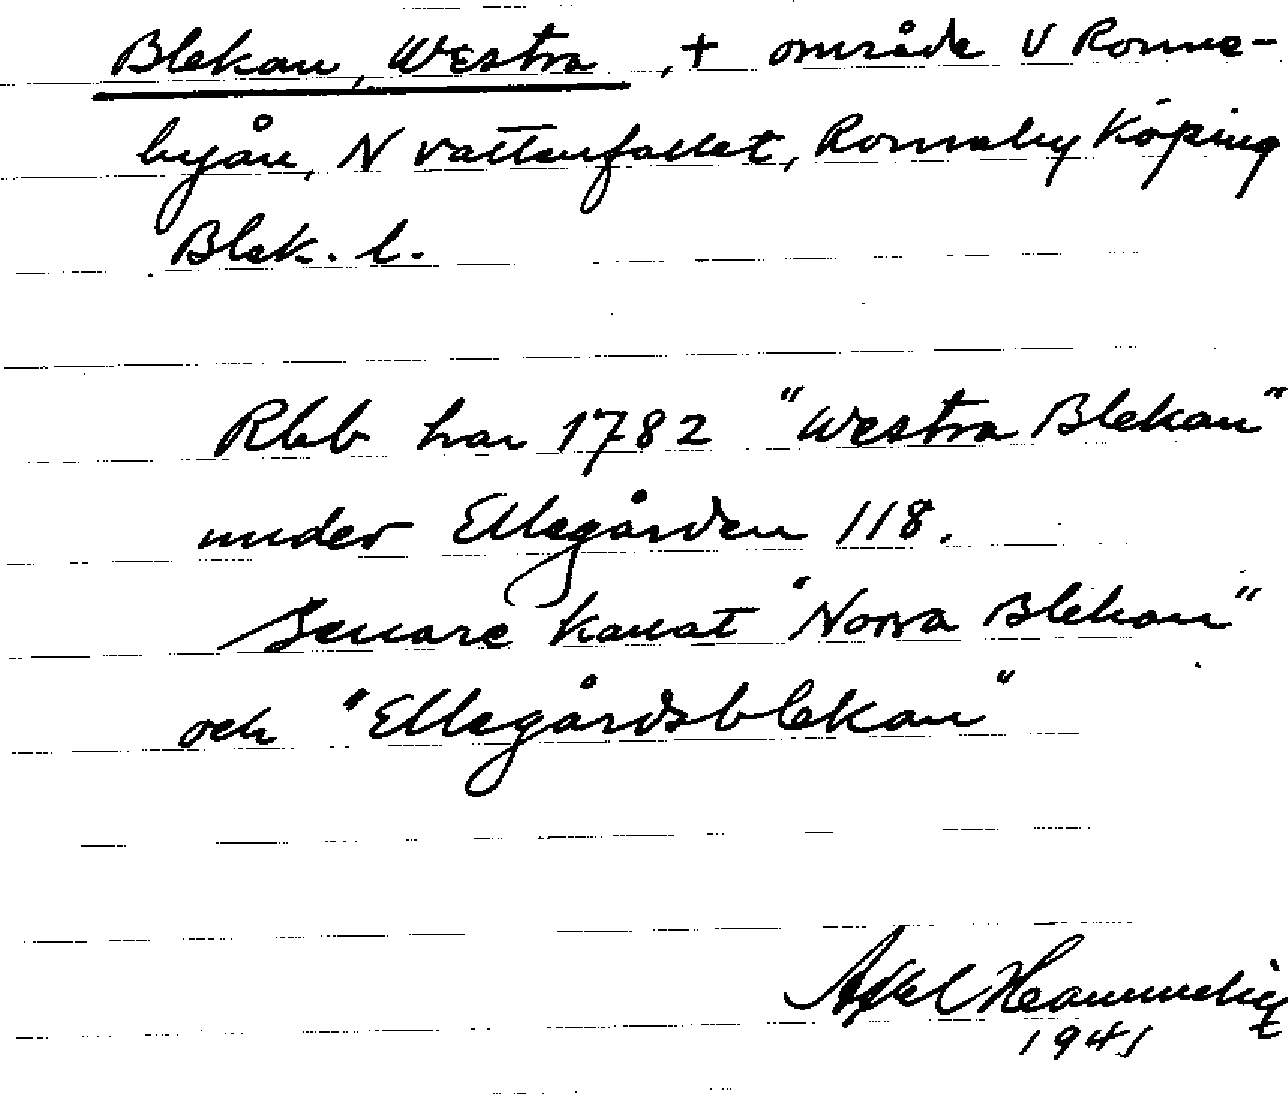 Blekan, Westra, + område V Ronne-
byån, N vattenfallet, Ronneby Köping
Blek. l.
Rbb har 1782 "Westra Blekan"
under Ellegården 118.
Senare kanat "Norra Blekan"
och "Ellegårdsblekan"
Axel
1941